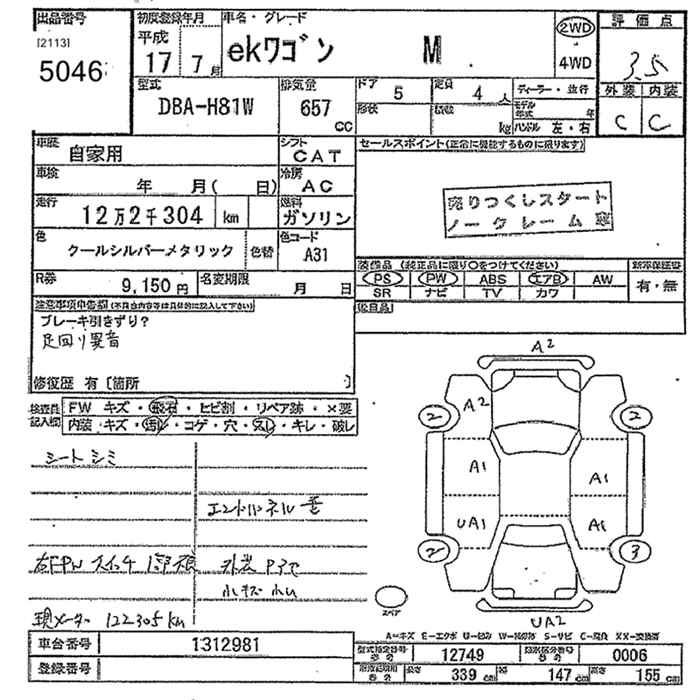 出品番号
[2113]
5046
初度登録年月
平成
17 7月
車名・グレード
ekワゴン M
2WD
4WD
評価点
3.5
外装 内装
C C
型式
DBA-H81W
排気量
657 CC
ドア 5
定員 4人
形状
積数 kg
ディーラー・並行
モデル年式 年
ハンドル 左・右
車歴
自家用
シフト
CAT
車検
年 月( 日)
冷房
AC
走行
12万2千304 km
燃料
ガソリン
色
クールシルバーメタリック
色替
色コード
A31
R券
9,150円
名変期限
月 日
セールスポイント(正常に機能するものに限ります)
売りつくしスタート
ノークレーム
装備品 (純正品に限り○をつけてください)
PS PW ABS エアB AW
SR ナビ TV カワ
新車保証書
有・無
注意事項申告欄(不具合内容等は具体的に記入して下さい)
ブレーキ引きずり?
足回り異音
修復歴 有 [箇所 ]
検査員記入欄
FW キズ・飛石・ヒビ割・リペア跡・×要
内装・キズ・汚レ・コゲ・穴・スレ・キレ・破レ
シートシミ
エントルネル
右FPWスイッチ
外装
小キズ 小U
現メーター 122305km
A2
2 A2 2
A1 A1
UA1 A1
2 3
スペア
UA2
A-キズ E-エクボ U-凹み W-補修跡 S-サビ C-腐食 XX-交換済
車台番号 1312981
登録番号
型式指定番号 12749
類別区分番号 0006
長さ 339 cm 幅 147 cm 高さ 155 cm